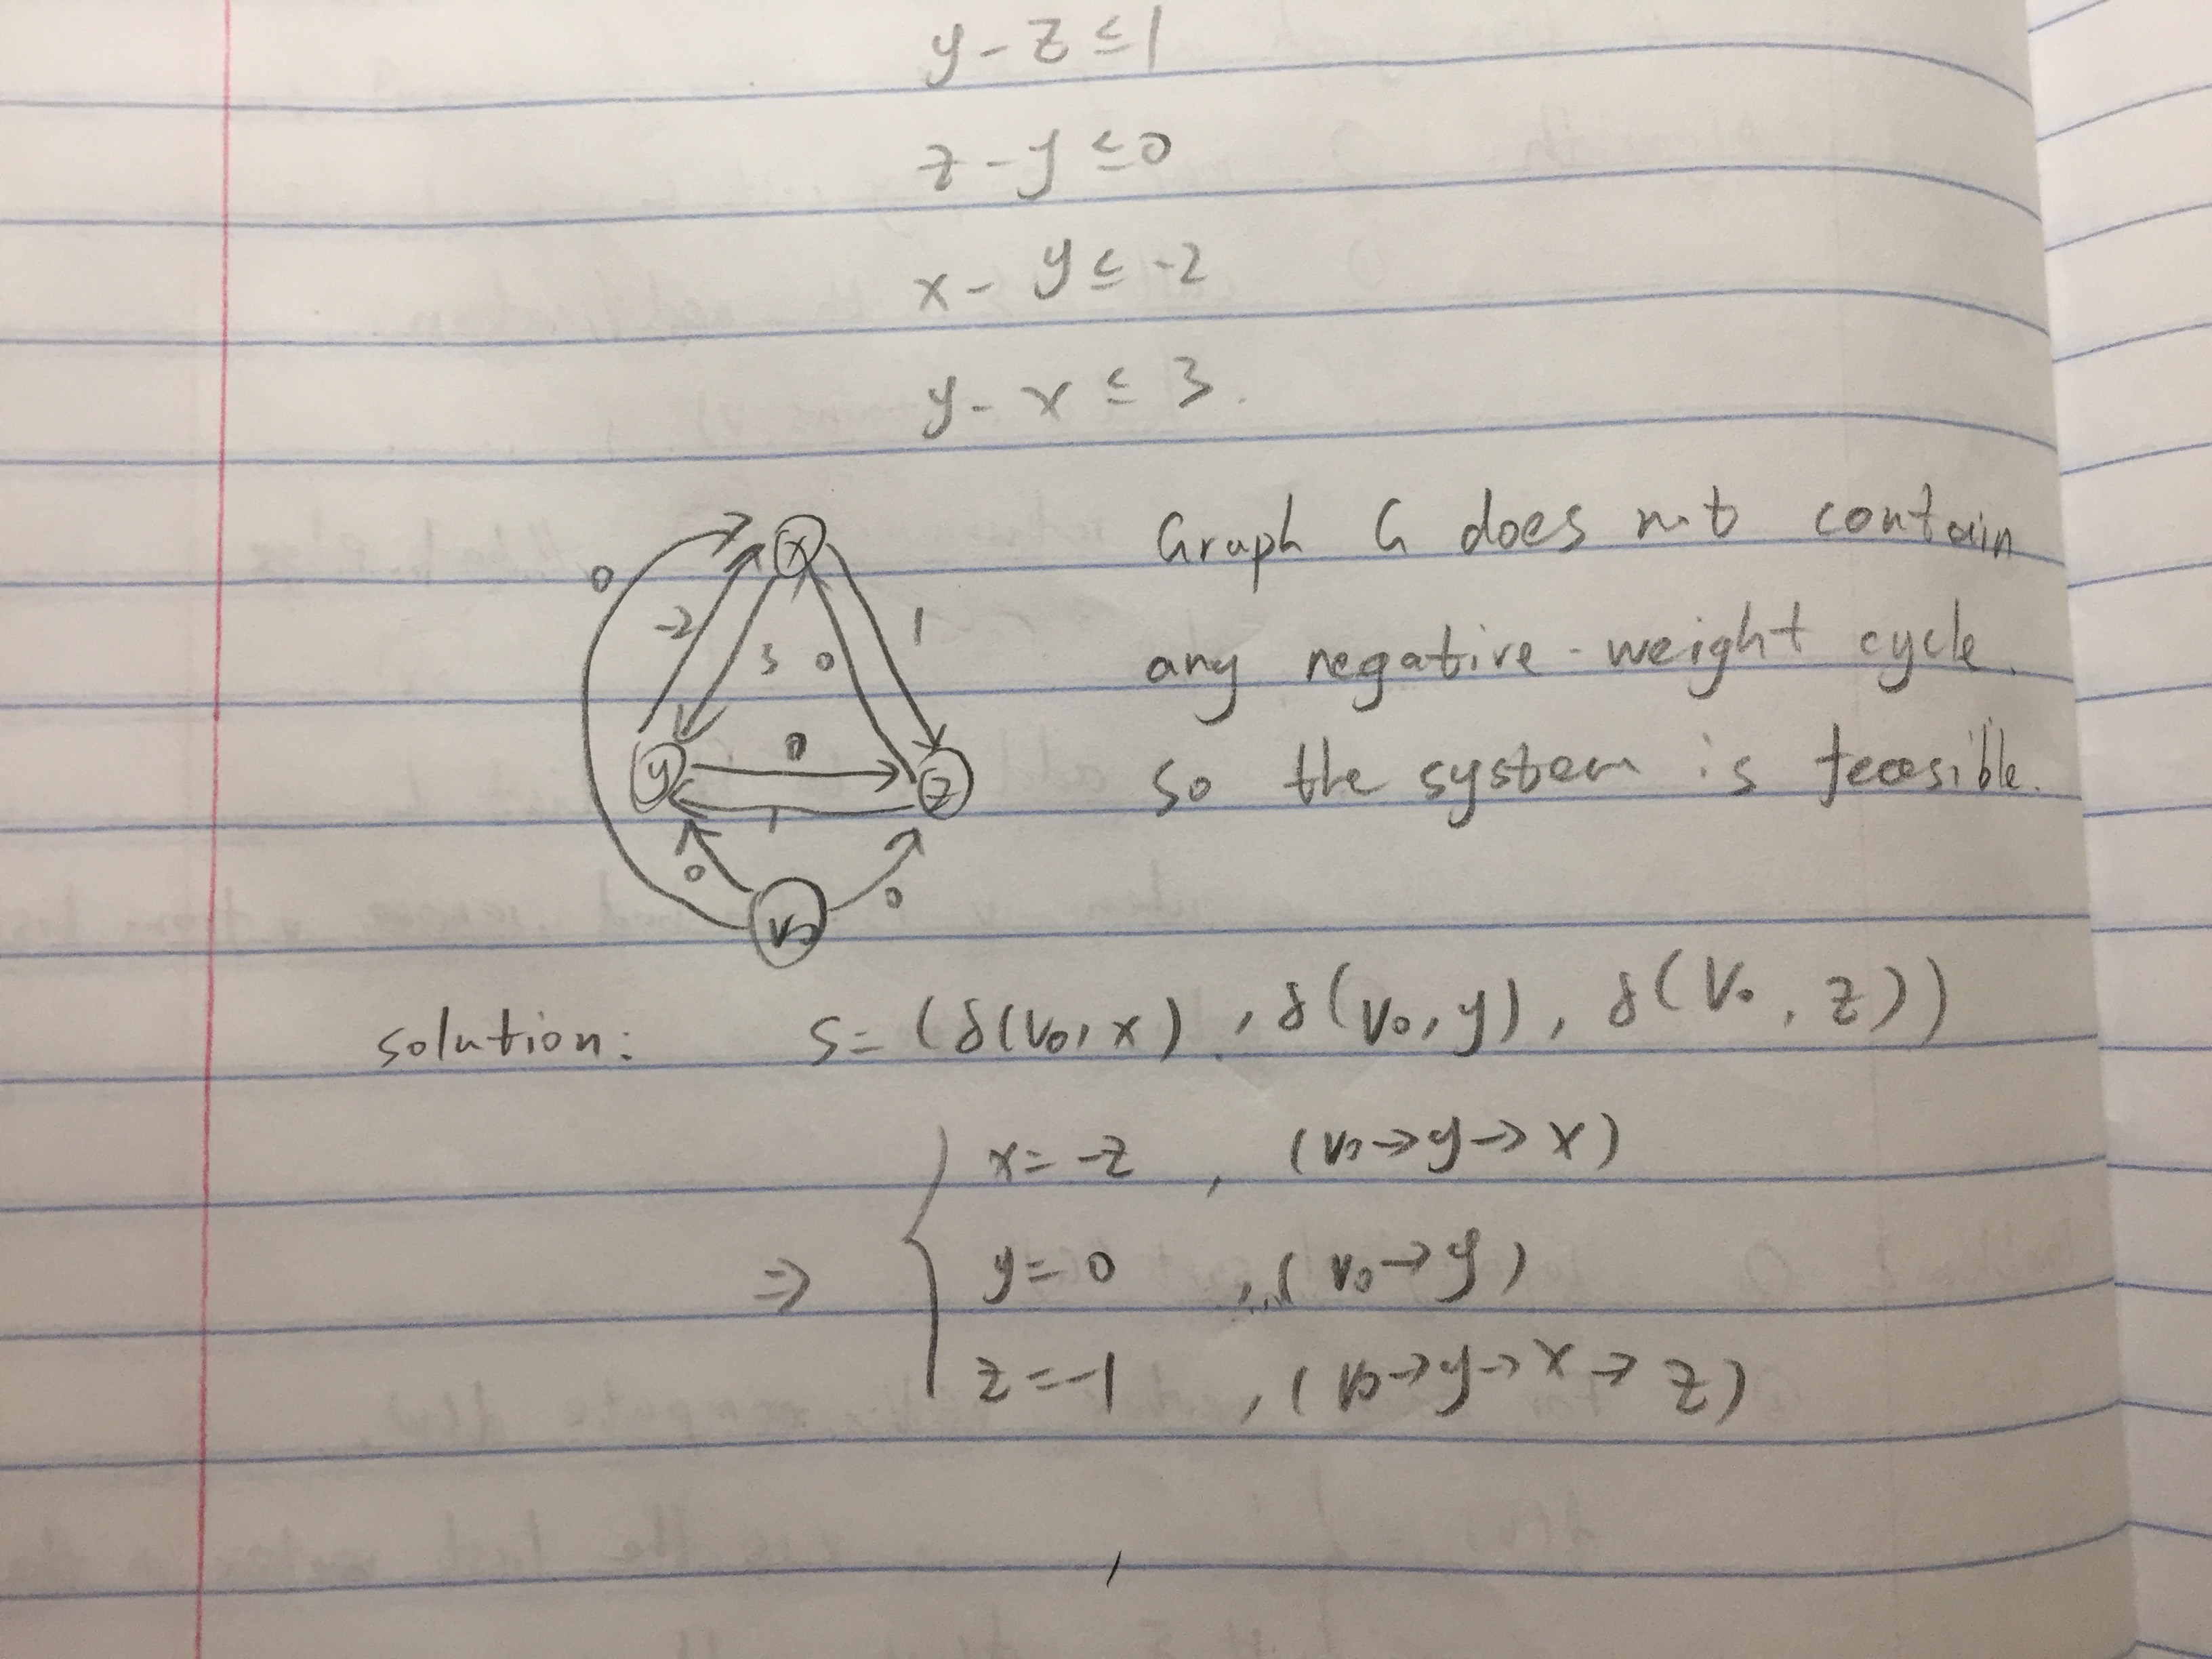 y - z ≤ 1
z - y ≤ 0
x - y ≤ -2
y - x ≤ 3.
x
0
-2
3
0
1
Graph G does not contain
any negative-weight cycle.
y
0
z
1
so the system is feasible.
0
0
V₀
solution: S = (δ(v₀, x), δ(v₀, y), δ(V₀, z))
x = -2 , (v₀ → y → x)
⇒ { y = 0 , (v₀ → y)
z = -1 , (v₀ → y → x → z)